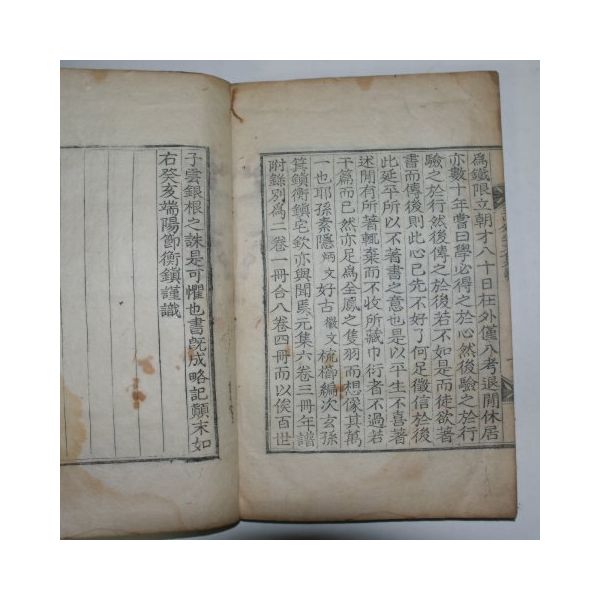 爲鐵限立朝才八十日在外僅八考退閒休居
亦數十年嘗曰學必得之於心然後驗之於行
驗之於行然後傳之於後若不如是而徒欲著
書而傳後則此心已先不好了何足徵信於後
此延平所以不著書之意也是以平生不喜著
述閒有所著輒棄而不收所藏巾衍者不過若
干篇而已然亦足爲金鳳之隻羽而想像其萬
一也耶孫素隱炳文好古徽文梳櫛編次玄孫
箕鎭衡鎭宅欽亦與聞焉元集六卷三冊年譜
附錄別爲二卷一冊合八卷四冊而以俟百世
子雲銀根之誅是可懼也書旣成略記顚末如
右癸亥端陽節衡鎭謹識